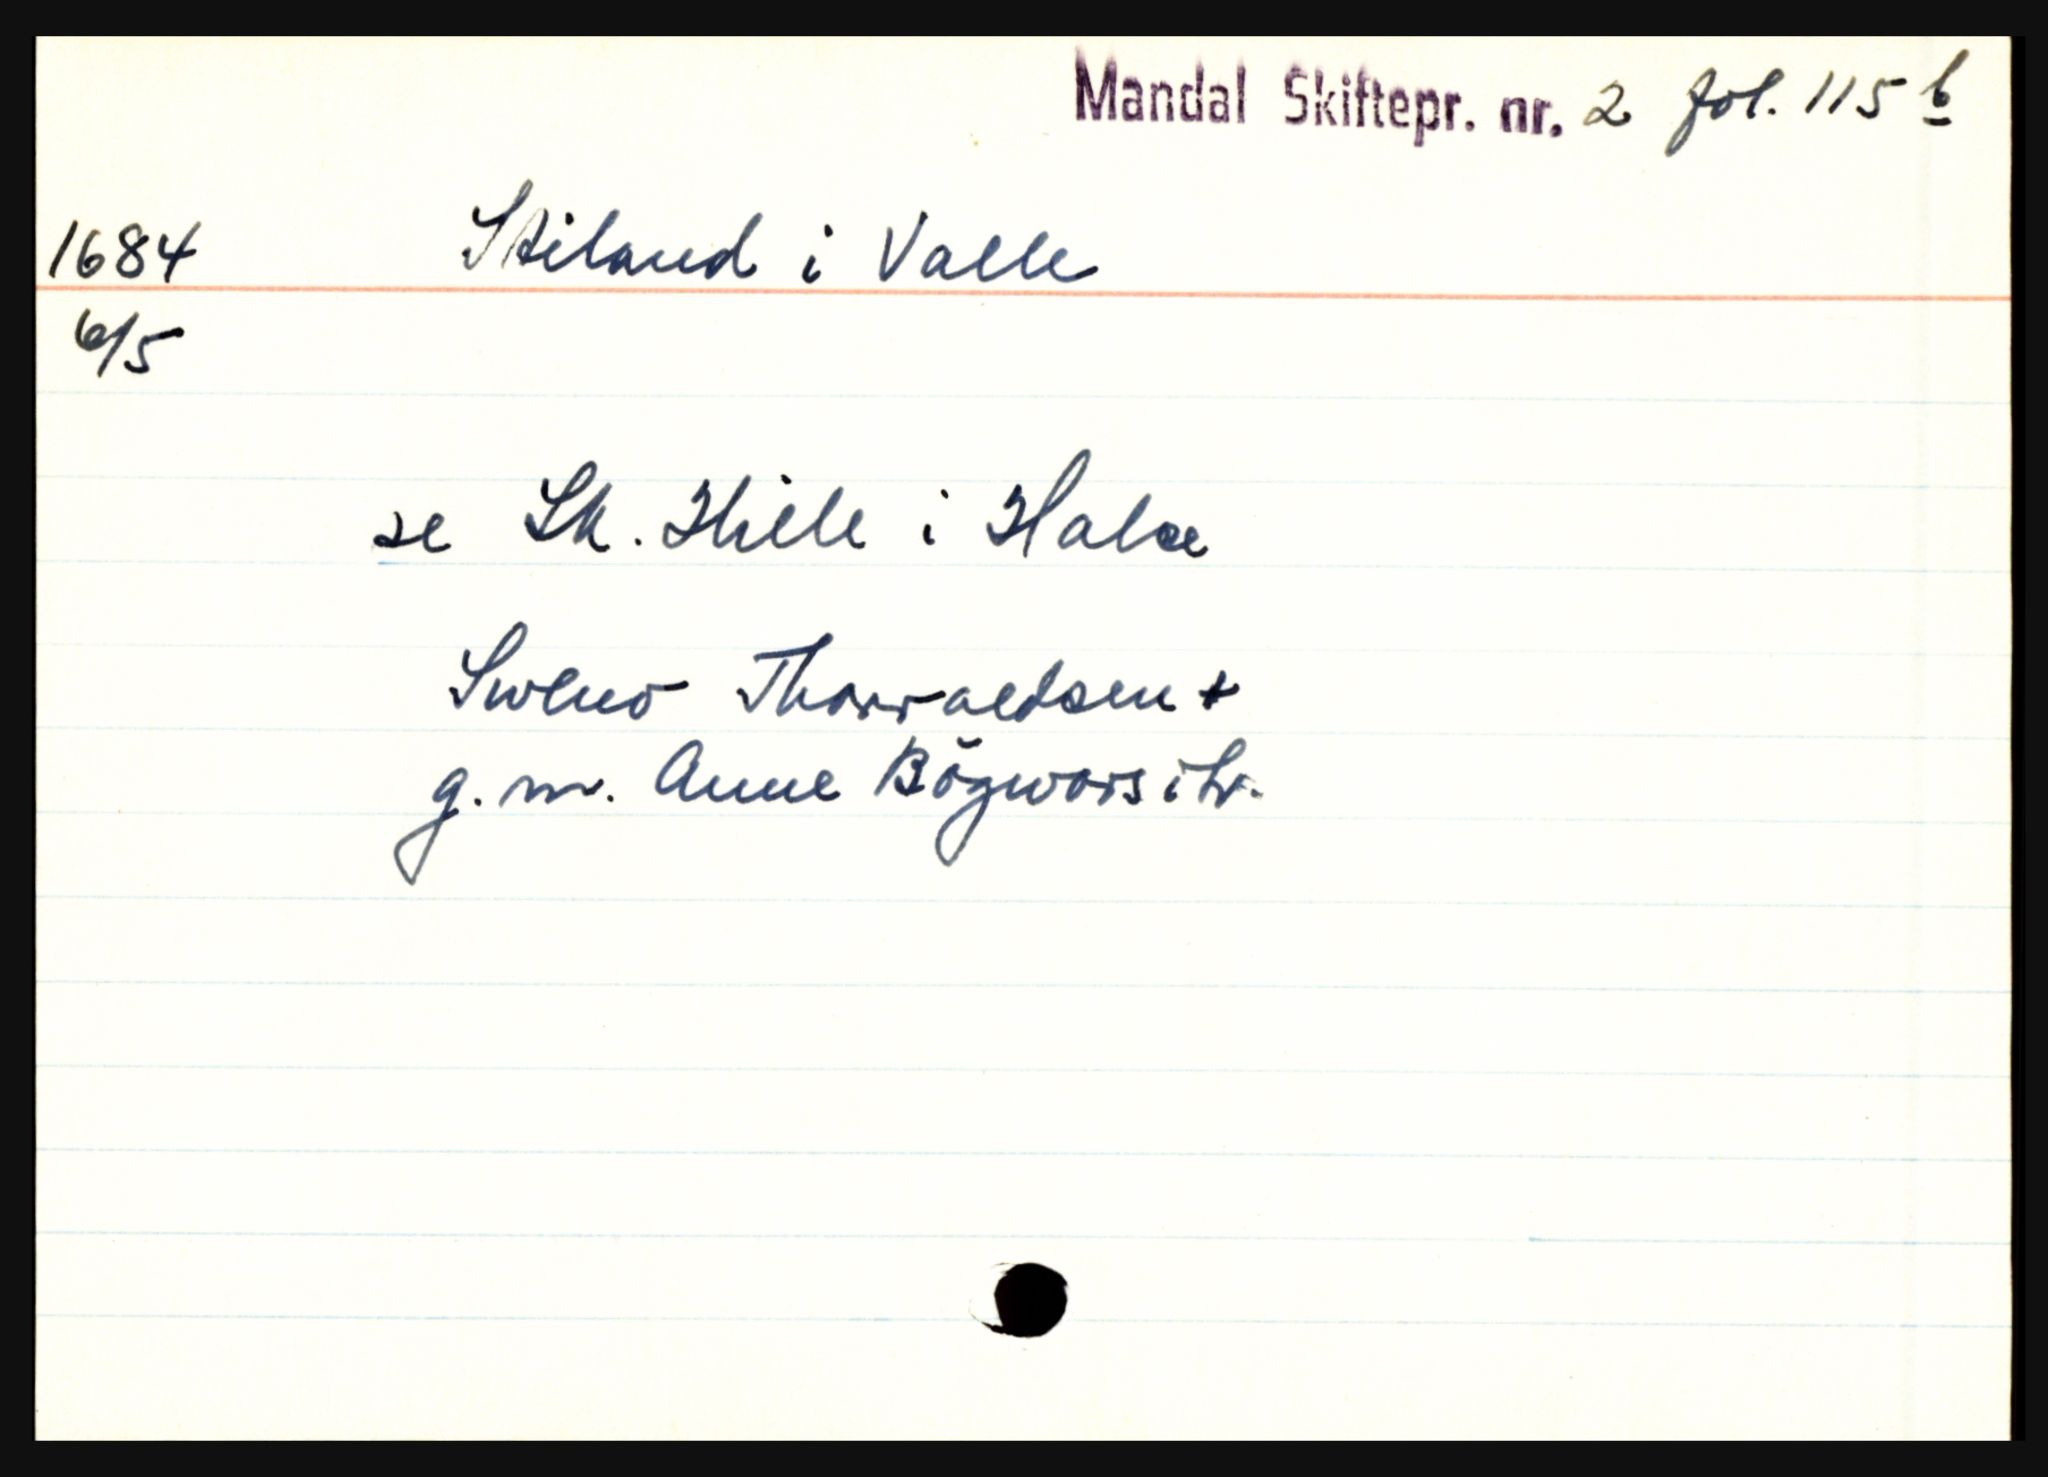 Mandal Skiftepr. nr. 2 fol. 115 b
1684 Stiland i Valle
6/5
se Sk. Hille i Halse
Swend Thorvaldsen +
g. m. Anne